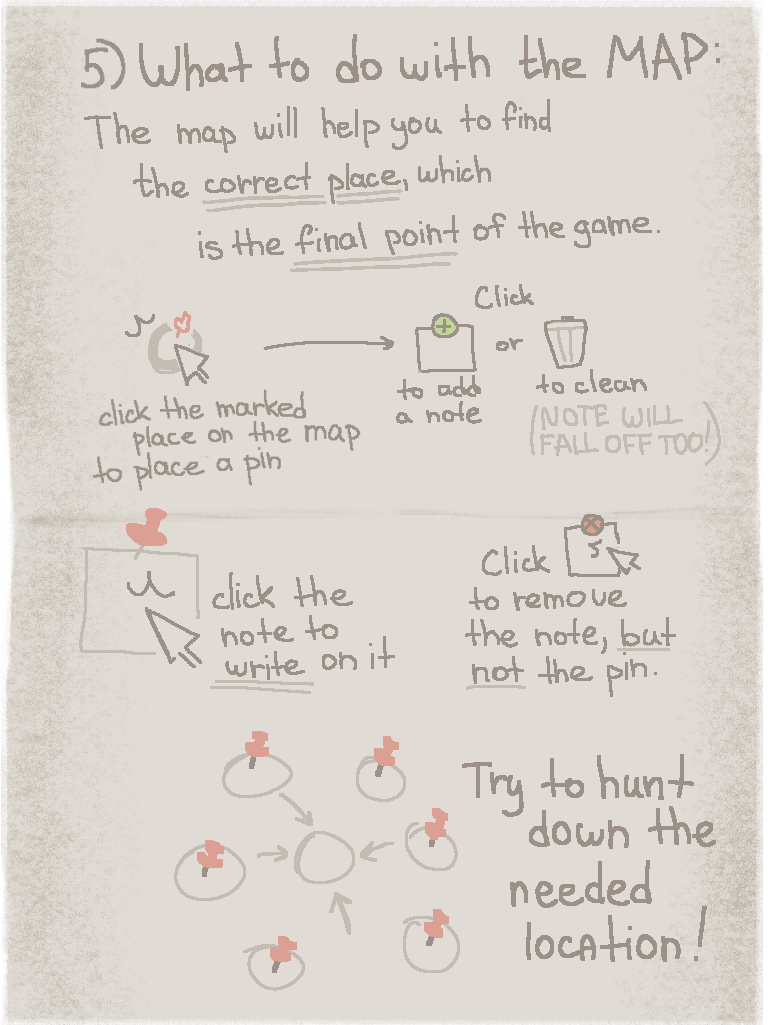 5) What to do with the MAP:
The map will help you to find
the correct place, which
is the final point of the game.
Click
or
click the marked
place on the map
to place a pin
to add
a note
to clean
(NOTE WILL
FALL OFF TOO!)
click the
note to
write on it
Click
to remove
the note, but
not the pin.
Try to hunt
down the
needed
location!